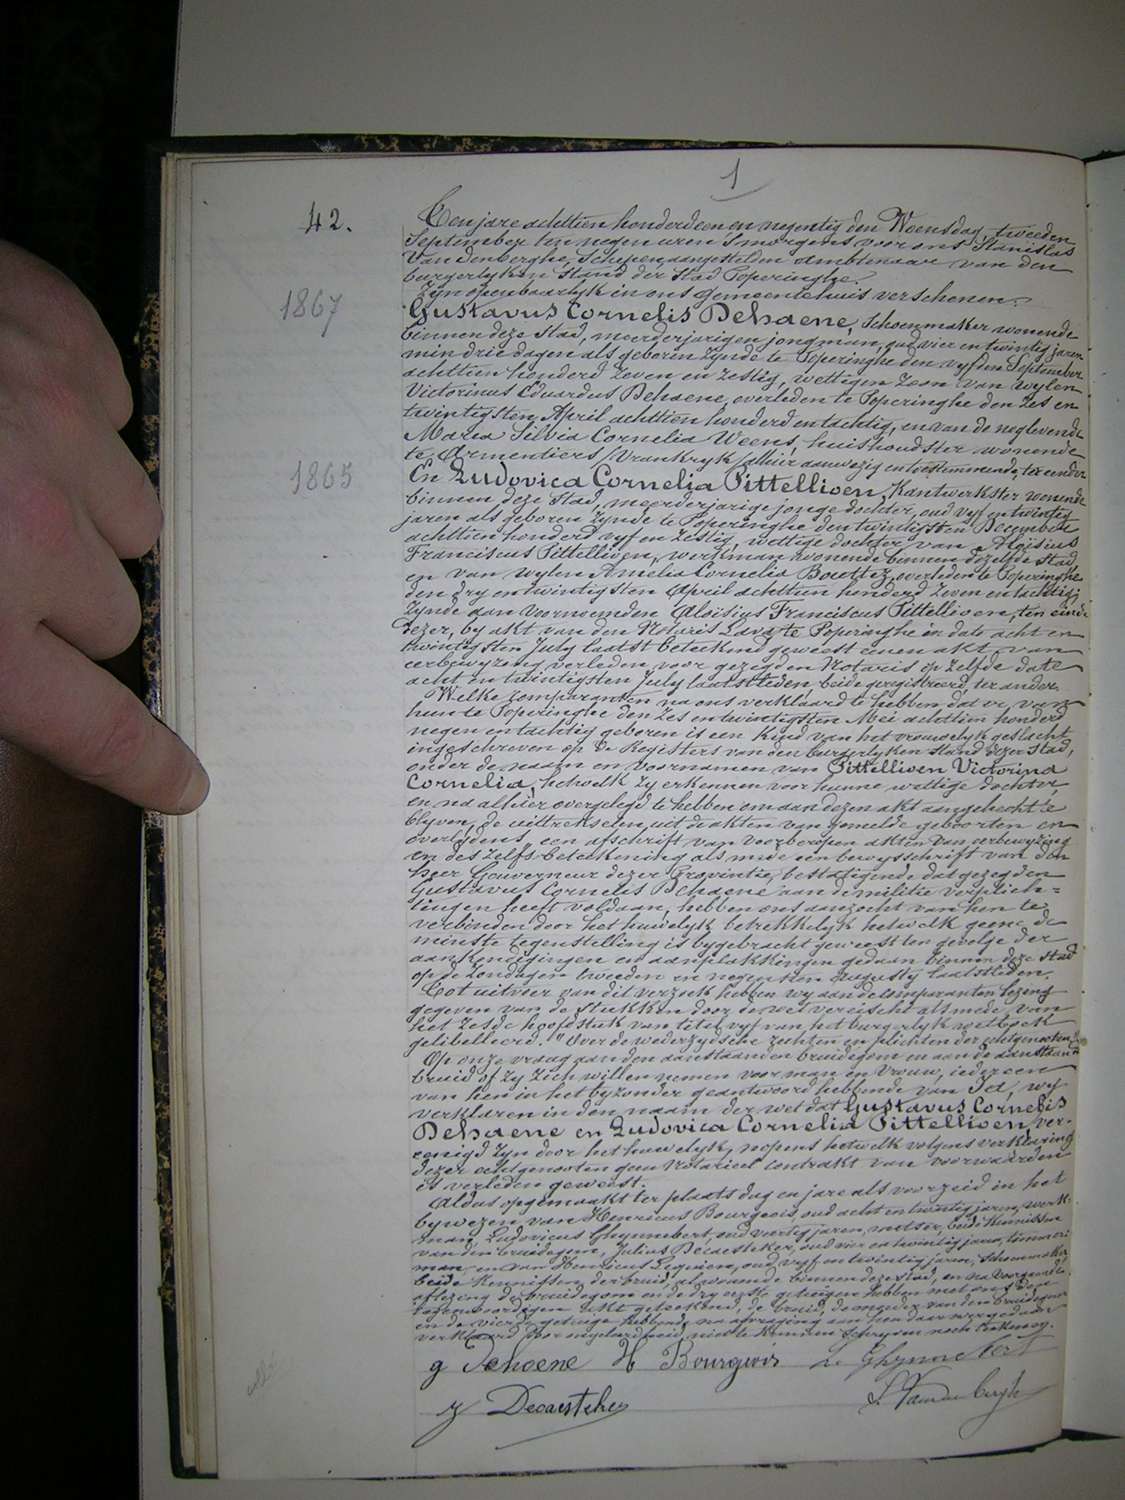 1
42.
Ten jare achttien honderd een en negentig den Woensdag, tweeden
September ten negen uren 's morgens voor ons Stanislas
Van denberghe, Schepen aangestelden ambtenaar van den
burgerlyken Stand der Stad Poperinghe.
Zyn openbaarlyk in ons gemeentehuis verschenen.
1867
Gustavus Cornelis Dehaene, Schoenmaker wonende
binnen deze Stad, meerderjarigen jongman, oud vier en twintig jaren
min drie dagen als geboren zynde te Poperinghe den vyfden September
achttien honderd zeven en zestig, wettigen zoon van wylen
Victorinus Eduardus Dehaene, overleden te Poperinghe den zes en
twintigsten April achttien honderd en tachtig, en van de neglevende
Maria Silvia Cornelia Weens, huishoudster wonende
te Armentiers /Vrankryk/ alhier aanwezig en toestemmende, ter eender
1865
En Ludovica Cornelia Pittellioen, Kantwerkster wonende
binnen deze Stad, meerderjarige jonge dochter, oud vyf en twintig
jaren als geboren zynde te Poperinghe den twintigsten December
achttien honderd vyf en zestig, wettige dochter van Aloïsius
Franciscus Pittellioen, werkman wonende binnen dezelfde Stad,
en van wylen Amelia Cornelia overleden te Poperinghe
den dry en twintigsten April achttien honderd zeven en tachtig,
zynde aan voornoemden Aloïsius Franciscus Pittellioen, ten einde
dezer, by akt van den Notaris te Poperinghe in date acht en
twintigsten July laatst beteekend geweest eenen akt van
eerbewyzing verleden voor gezegden Notaris op zelfde date
acht en twintigsten July laatstleden, beide geregistreerd, ter ander.
Welke comparanten na ons verklaard te hebben dat er, van
hun te Poperinghe den zes en twintigsten Mei achttien honderd
negen en tachtig geboren is een kind van het vrouwelyk geslacht
ingeschreven op de Registers van den burgerlyken Stand dezer Stad,
onder de naam en voornamen van Pittellioen Victorina
Cornelia, hetwelk zy erkennen voor hunne wettige dochter,
en na alhier overgelegd te hebben om aan dezen akt aangehecht te
blyven, de uittrekselen uit de akten van gemelde geboorten en
overlydens, een afschrift van voorberoepen akten van eerbewyzing
en deszelfs beteekening als mede een bewysschrift van den
Heer Gouverneur dezer Provintie, bestatigende dat gezegden
Gustavus Cornelis Dehaene aan de militie verplich=
tingen heeft voldaan, hebben ons aanzocht van hen te
verbinden door het huwelyk betrekkelyk hetwelk geene de
minste tegenstelling is bygebracht geweest ten gevolge der
aankondigingen en aanplakkingen gedaan binnen deze Stad
op de zondagen tweeden en negensten Augusty laatstleden.
Tot uitvoer van dit verzoek hebben wy aan de comparanten lezing
gegeven van de Stukken door de wet vereischt alsmede van
het zesde hoofdstuk van titel vyf van het burgerlyk wetboek
gelibelleerd "Over de wederzydsche rechten en plichten der echtgenooten"
Op onze vraag aan den aanstaanden bruidegom en aan de aanstaande
bruid of zy zich willen nemen voor man en vrouw, ieder een
van hen in het byzonder geantwoord hebbende van Ja, wy
verklaren in den naam der wet dat Gustavus Cornelis
Dehaene en Ludovica Cornelia Pittellioen, ver-
eenigd zyn door het huwelyk, nopens hetwelk volgens verklaring
dezer echtgenooten geen Notarieel contrakt van voorwaarden
is verleden geweest.
Aldus opgemaakt ter plaats dag en jare als voorzeid in het
bywezen van Henricus Bourgeois, oud acht en twintig jaren, werk-
man, Ludovicus Ghynnebert, oud veertig jaren, metser, beide Kennissen
van den bruidegom, Julius Decaesteker, oud vier en twintig jaren,
man, en van Henricus Lequien, oud vyf en twintig jaren, Schoenmaker,
beide Kennissen der bruid, al wonende binnen deze stad, en na voorgaande
aflezing de bruidegom en de dry eerste getuigen hebben met ons deze
tegenwoordigen akt geteekend, de bruid, de moeder van den bruidegom
en de vierde getuige hebbende na afvraging aan hen daarover gedaan
verklaard voor ongeleerdheid, niet te kunnen schryven noch teekenen.
g Dehaene H Bourgeois L. Ghynnebert
J Decaesteker S. Vandenberghe